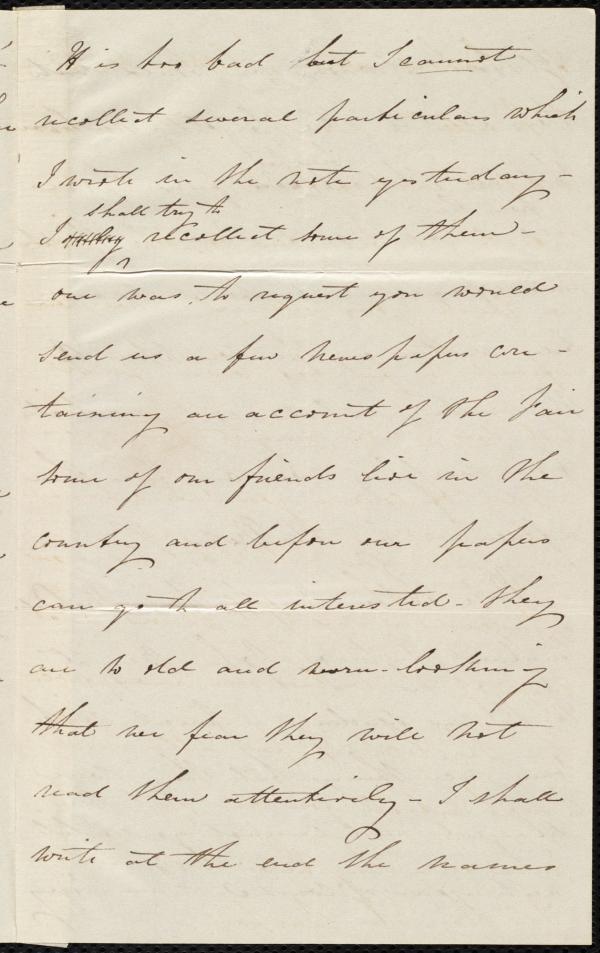 It is too bad but I cannot
recollect several particulars which
I wrote in the note yesterday -
shall try to
I recollect some of them -
one was, to request you would
send us a few newspapers con-
taining an account of the Fair
some of our friends live in the
country and before our papers
can go to all interested - they
are to old and worn-looking
that we fear they will not
read them attentively - I shall
write at the end the names